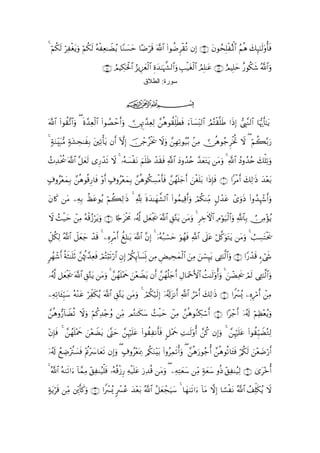 فَأُو۟لَٰٓئِكَ هُمُ ٱلْمُفْلِحُونَ ﴿١٦﴾ إِن تُقْرِضُوا۟ ٱللَّهَ قَرْضًا حَسَنًا يُضَٰعِفْهُ لَكُمْ وَيَغْفِرْ لَكُمْ ۚ
وَٱللَّهُ شَكُورٌ حَلِيمٌ ﴿١٧﴾ عَٰلِمُ ٱلْغَيْبِ وَٱلشَّهَٰدَةِ ٱلْعَزِيزُ ٱلْحَكِيمُ ﴿١٨﴾
سورة: الطلاق
بِسْمِ ٱللَّهِ ٱلرَّحْمَٰنِ ٱلرَّحِيمِ
يَٰٓأَيُّهَا ٱلنَّبِىُّ إِذَا طَلَّقْتُمُ ٱلنِّسَآءَ فَطَلِّقُوهُنَّ لِعِدَّتِهِنَّ وَأَحْصُوا۟ ٱلْعِدَّةَ ۖ وَٱتَّقُوا۟ ٱللَّهَ
رَبَّكُمْ ۖ لَا تُخْرِجُوهُنَّ مِنۢ بُيُوتِهِنَّ وَلَا يَخْرُجْنَ إِلَّآ أَن يَأْتِينَ بِفَٰحِشَةٍ مُّبَيِّنَةٍ ۚ
وَتِلْكَ حُدُودُ ٱللَّهِ ۚ وَمَن يَتَعَدَّ حُدُودَ ٱللَّهِ فَقَدْ ظَلَمَ نَفْسَهُۥ ۚ لَا تَدْرِى لَعَلَّ ٱللَّهَ يُحْدِثُ
بَعْدَ ذَٰلِكَ أَمْرًا ﴿١﴾ فَإِذَا بَلَغْنَ أَجَلَهُنَّ فَأَمْسِكُوهُنَّ بِمَعْرُوفٍ أَوْ فَارِقُوهُنَّ بِمَعْرُوفٍ
وَأَشْهِدُوا۟ ذَوَىْ عَدْلٍ مِّنكُمْ وَأَقِيمُوا۟ ٱلشَّهَٰدَةَ لِلَّهِ ۚ ذَٰلِكُمْ يُوعَظُ بِهِۦ مَن كَانَ
يُؤْمِنُ بِٱللَّهِ وَٱلْيَوْمِ ٱلْءَاخِرِ ۚ وَمَن يَتَّقِ ٱللَّهَ يَجْعَل لَّهُۥ مَخْرَجًا ﴿٢﴾ وَيَرْزُقْهُ مِنْ حَيْثُ لَا
يَحْتَسِبُ ۚ وَمَن يَتَوَكَّلْ عَلَى ٱللَّهِ فَهُوَ حَسْبُهُۥٓ ۚ إِنَّ ٱللَّهَ بَٰلِغُ أَمْرِهِۦ ۚ قَدْ جَعَلَ ٱللَّهُ لِكُلِّ
شَىْءٍ قَدْرًا ﴿٣﴾ وَٱلَّٰٓـِٔى يَئِسْنَ مِنَ ٱلْمَحِيضِ مِن نِّسَآئِكُمْ إِنِ ٱرْتَبْتُمْ فَعِدَّتُهُنَّ ثَلَٰثَةُ أَشْهُرٍ
وَٱلَّٰٓـِٔى لَمْ يَحِضْنَ ۚ وَأُو۟لَٰتُ ٱلْأَحْمَالِ أَجَلُهُنَّ أَن يَضَعْنَ حَمْلَهُنَّ ۚ وَمَن يَتَّقِ ٱللَّهَ يَجْعَل لَّهُۥ
مِنْ أَمْرِهِۦ يُسْرًا ﴿٤﴾ ذَٰلِكَ أَمْرُ ٱللَّهِ أَنزَلَهُۥٓ إِلَيْكُمْ ۚ وَمَن يَتَّقِ ٱللَّهَ يُكَفِّرْ عَنْهُ سَيِّـَٔاتِهِۦ
وَيُعْظِمْ لَهُۥٓ أَجْرًا ﴿٥﴾ أَسْكِنُوهُنَّ مِنْ حَيْثُ سَكَنتُم مِّن وُجْدِكُمْ وَلَا تُضَآرُّوهُنَّ
لِتُضَيِّقُوا۟ عَلَيْهِنَّ ۚ وَإِن كُنَّ أُو۟لَٰتِ حَمْلٍ فَأَنفِقُوا۟ عَلَيْهِنَّ حَتَّىٰ يَضَعْنَ حَمْلَهُنَّ ۚ فَإِنْ
أَرْضَعْنَ لَكُمْ فَـَٔاتُوهُنَّ أُجُورَهُنَّ ۖ وَأْتَمِرُوا۟ بَيْنَكُم بِمَعْرُوفٍ ۖ وَإِن تَعَاسَرْتُمْ فَسَتُرْضِعُ لَهُۥٓ
أُخْرَىٰ ﴿٦﴾ لِيُنفِقْ ذُو سَعَةٍ مِّن سَعَتِهِۦ ۖ وَمَن قُدِرَ عَلَيْهِ رِزْقُهُۥ فَلْيُنفِقْ مِمَّآ ءَاتَىٰهُ ٱللَّهُ ۚ
لَا يُكَلِّفُ ٱللَّهُ نَفْسًا إِلَّا مَآ ءَاتَىٰهَا ۚ سَيَجْعَلُ ٱللَّهُ بَعْدَ عُسْرٍ يُسْرًا ﴿٧﴾ وَكَأَيِّن مِّن قَرْيَةٍ